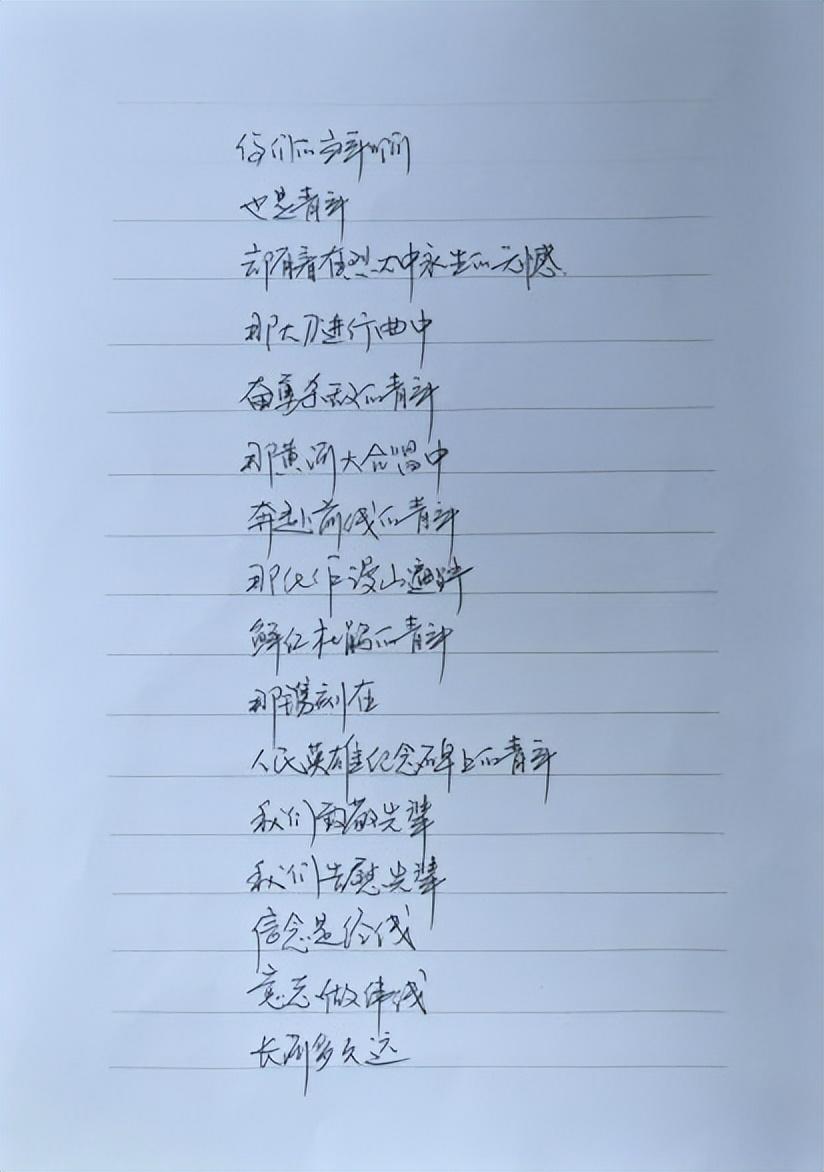 你们的青年啊
也是青年
却有着在烈火中永生的无憾
那大刀进行曲中
奋勇杀敌的青年
那黄河大合唱中
奔赴前线的青年
那化作漫山遍野
鲜红杜鹃的青年
那镌刻在
人民英雄纪念碑上的青年
我们致敬先辈
我们告慰先辈
信念是经线
意志做纬线
长河多久远